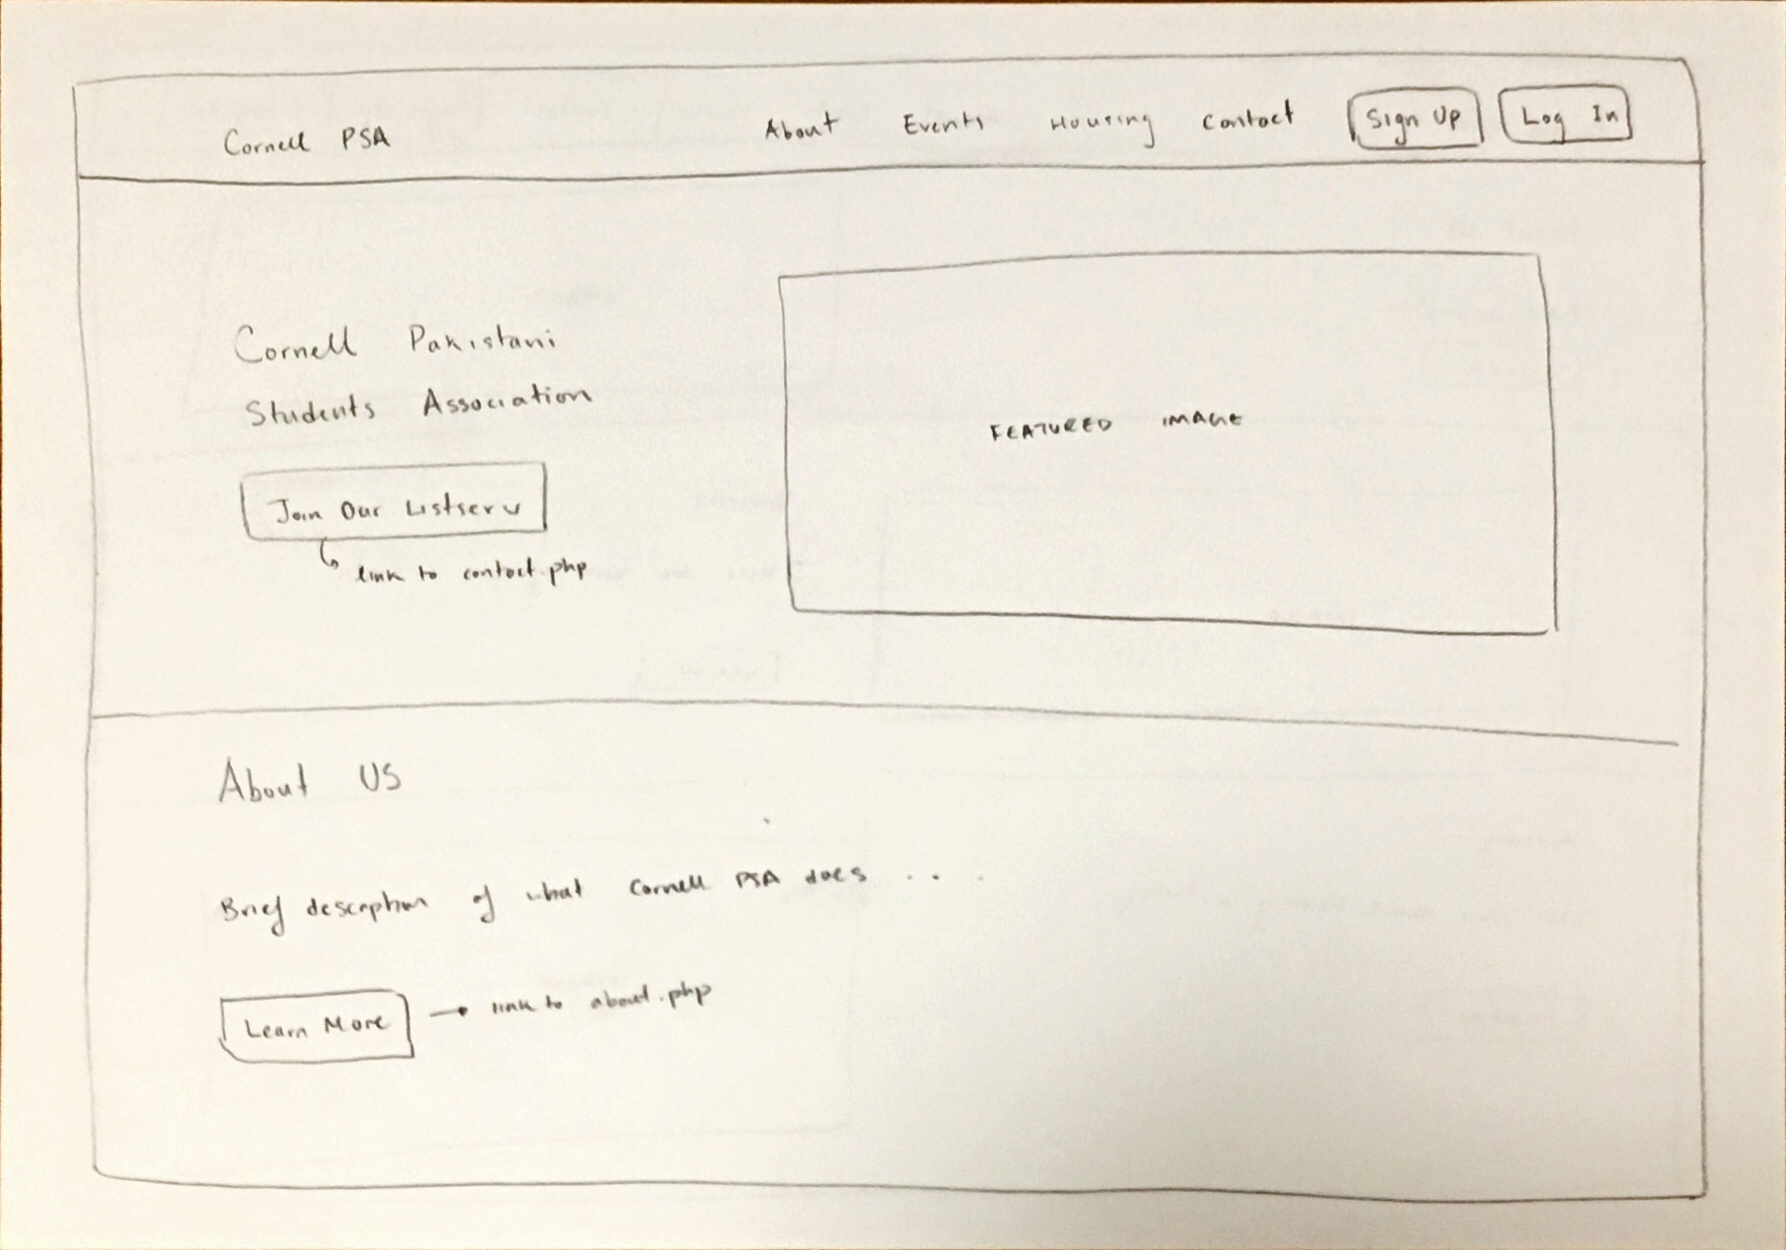 Cornell PSA About Events Housing Contact Sign Up Log In
Cornell Pakistani
Students Association
FEATURED IMAGE
Join Our Listserv
link to contact.php
About US
Brief description of what Cornell PSA does . . .
Learn More → link to about.php